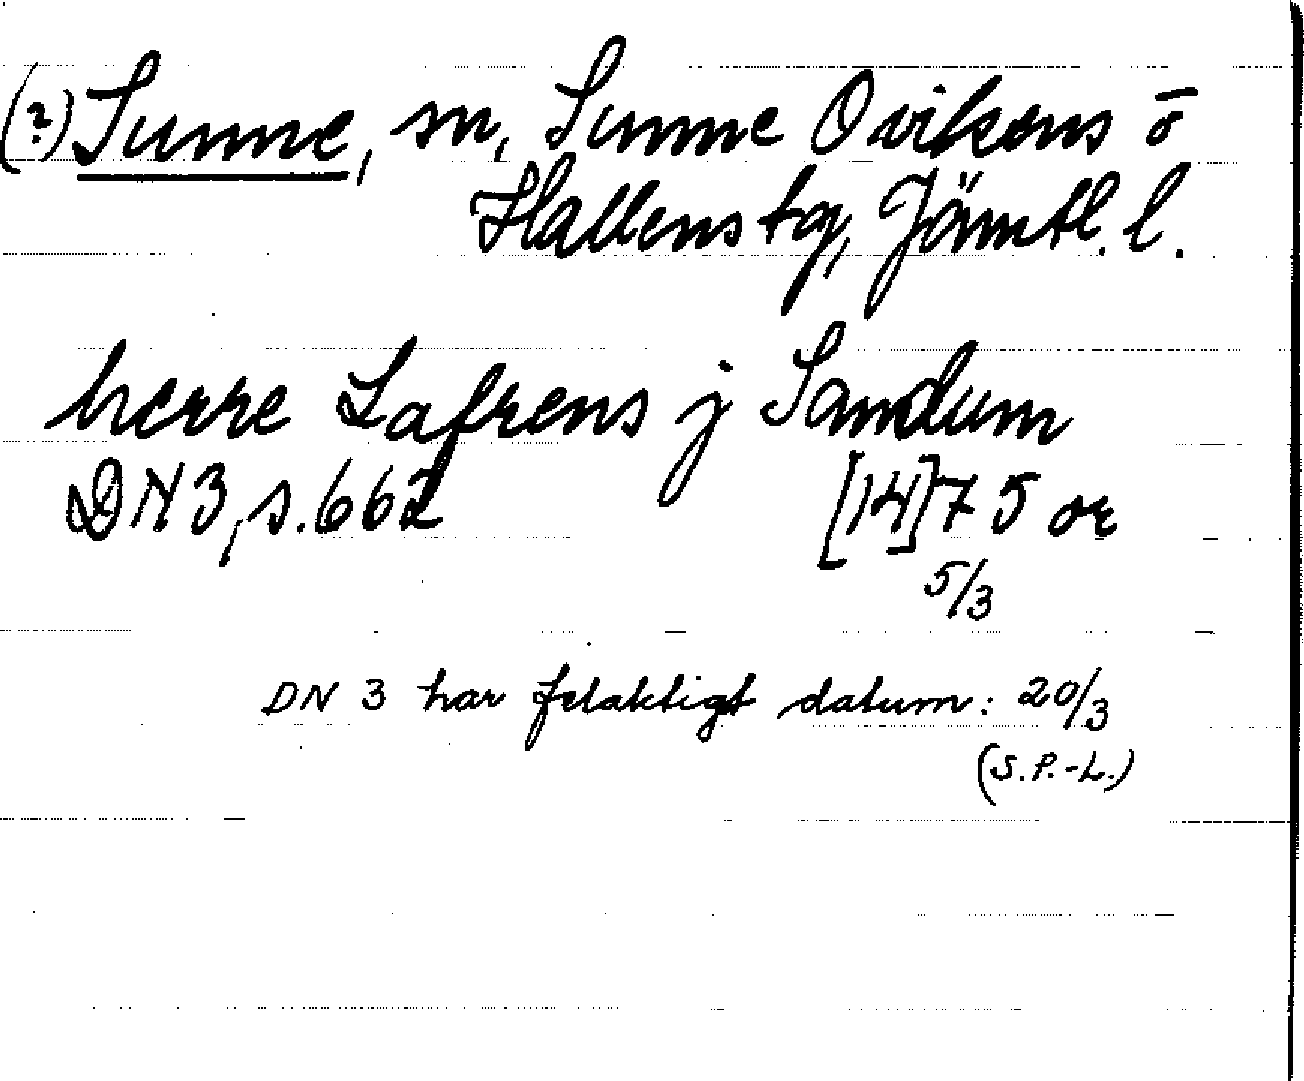 (?) Sunne, sn, Sunne Ovikens o
Hallens tg, Jämtl. l.
herre Lafrens j Sandum
DN 3, s. 662 [14]75 or
5/3
DN 3 har felaktigt datum: 20/3
(S.P.-L.)